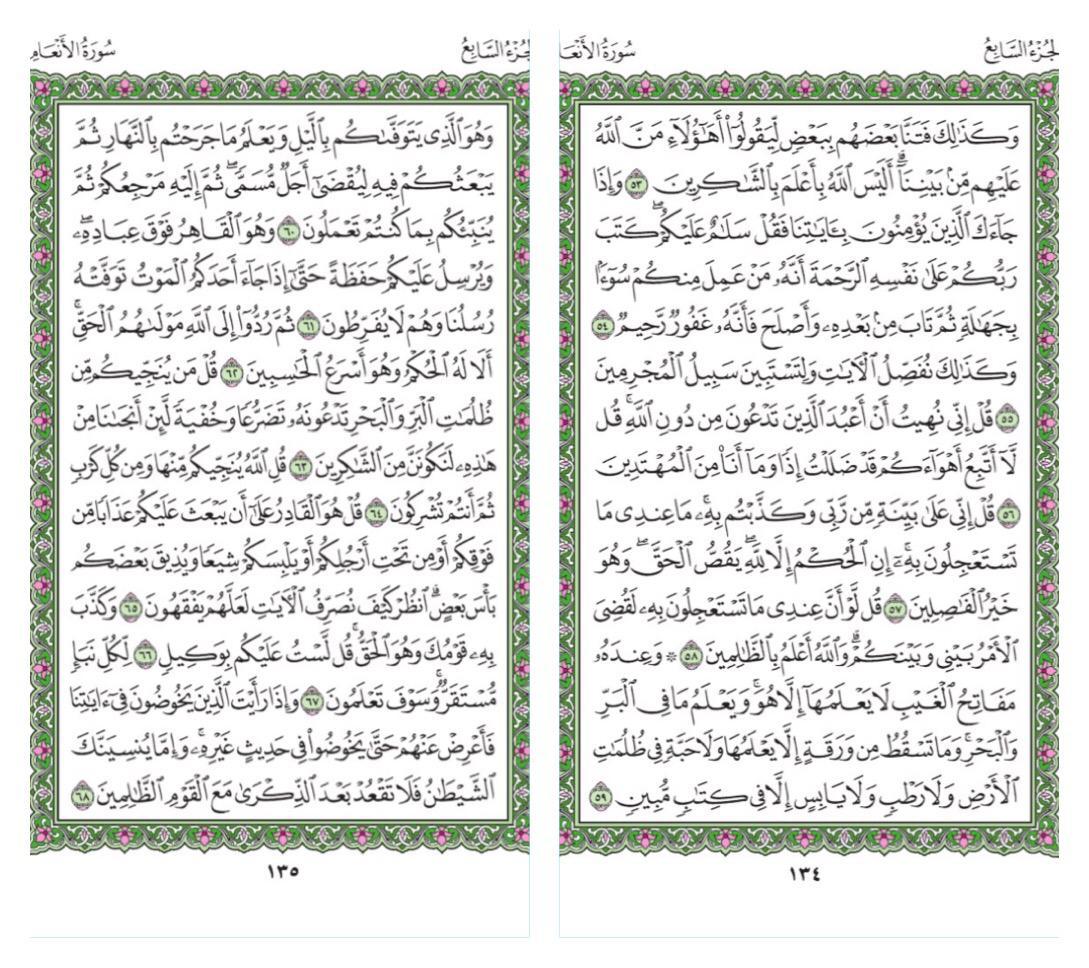 الجزء السابع
سورة الأنعام
وَكَذَٰلِكَ فَتَنَّا بَعْضَهُم بِبَعْضٍ لِّيَقُولُوٓا۟ أَهَـٰٓؤُلَآءِ مَنَّ ٱللَّهُ
عَلَيْهِم مِّنۢ بَيْنِنَآ ۗ أَلَيْسَ ٱللَّهُ بِأَعْلَمَ بِٱلشَّـٰكِرِينَ ٥٣ وَإِذَا
جَآءَكَ ٱلَّذِينَ يُؤْمِنُونَ بِـَٔايَـٰتِنَا فَقُلْ سَلَـٰمٌ عَلَيْكُمْ ۖ كَتَبَ
رَبُّكُمْ عَلَىٰ نَفْسِهِ ٱلرَّحْمَةَ أَنَّهُۥ مَنْ عَمِلَ مِنكُمْ سُوٓءًۢا
بِجَهَـٰلَةٍ ثُمَّ تَابَ مِنۢ بَعْدِهِۦ وَأَصْلَحَ فَأَنَّهُۥ غَفُورٌ رَّحِيمٌ ٥٤
وَكَذَٰلِكَ نُفَصِّلُ ٱلْـَٔايَـٰتِ وَلِتَسْتَبِينَ سَبِيلُ ٱلْمُجْرِمِينَ
٥٥ قُلْ إِنِّى نُهِيتُ أَنْ أَعْبُدَ ٱلَّذِينَ تَدْعُونَ مِن دُونِ ٱللَّهِ ۚ قُل
لَّآ أَتَّبِعُ أَهْوَآءَكُمْ ۙ قَدْ ضَلَلْتُ إِذًا وَمَآ أَنَا۠ مِنَ ٱلْمُهْتَدِينَ
٥٦ قُلْ إِنِّى عَلَىٰ بَيِّنَةٍ مِّن رَّبِّى وَكَذَّبْتُم بِهِۦ ۚ مَا عِندِى مَا
تَسْتَعْجِلُونَ بِهِۦٓ ۚ إِنِ ٱلْحُكْمُ إِلَّا لِلَّهِ ۖ يَقُصُّ ٱلْحَقَّ ۖ وَهُوَ
خَيْرُ ٱلْفَـٰصِلِينَ ٥٧ قُل لَّوْ أَنَّ عِندِى مَا تَسْتَعْجِلُونَ بِهِۦ لَقُضِىَ
ٱلْأَمْرُ بَيْنِى وَبَيْنَكُمْ ۗ وَٱللَّهُ أَعْلَمُ بِٱلظَّـٰلِمِينَ ٥٨ ۞ وَعِندَهُۥ
مَفَاتِحُ ٱلْغَيْبِ لَا يَعْلَمُهَآ إِلَّا هُوَ ۚ وَيَعْلَمُ مَا فِى ٱلْبَرِّ
وَٱلْبَحْرِ ۚ وَمَا تَسْقُطُ مِن وَرَقَةٍ إِلَّا يَعْلَمُهَا وَلَا حَبَّةٍ فِى ظُلُمَـٰتِ
ٱلْأَرْضِ وَلَا رَطْبٍ وَلَا يَابِسٍ إِلَّا فِى كِتَـٰبٍ مُّبِينٍ ٥٩
١٣٤
الجزء السابع
سورة الأنعام
وَهُوَ ٱلَّذِى يَتَوَفَّىٰكُم بِٱلَّيْلِ وَيَعْلَمُ مَا جَرَحْتُم بِٱلنَّهَارِ ثُمَّ
يَبْعَثُكُمْ فِيهِ لِيُقْضَىٰٓ أَجَلٌ مُّسَمًّى ۖ ثُمَّ إِلَيْهِ مَرْجِعُكُمْ ثُمَّ
يُنَبِّئُكُم بِمَا كُنتُمْ تَعْمَلُونَ ٦٠ وَهُوَ ٱلْقَاهِرُ فَوْقَ عِبَادِهِۦ ۖ
وَيُرْسِلُ عَلَيْكُمْ حَفَظَةً حَتَّىٰٓ إِذَا جَآءَ أَحَدَكُمُ ٱلْمَوْتُ تَوَفَّتْهُ
رُسُلُنَا وَهُمْ لَا يُفَرِّطُونَ ٦١ ثُمَّ رُدُّوٓا۟ إِلَى ٱللَّهِ مَوْلَىٰهُمُ ٱلْحَقِّ ۚ
أَلَا لَهُ ٱلْحُكْمُ وَهُوَ أَسْرَعُ ٱلْحَـٰسِبِينَ ٦٢ قُلْ مَن يُنَجِّيكُم مِّن
ظُلُمَـٰتِ ٱلْبَرِّ وَٱلْبَحْرِ تَدْعُونَهُۥ تَضَرُّعًا وَخُفْيَةً لَّئِنْ أَنجَىٰنَا مِنْ
هَـٰذِهِۦ لَنَكُونَنَّ مِنَ ٱلشَّـٰكِرِينَ ٦٣ قُلِ ٱللَّهُ يُنَجِّيكُم مِّنْهَا وَمِن كُلِّ كَرْبٍ
ثُمَّ أَنتُمْ تُشْرِكُونَ ٦٤ قُلْ هُوَ ٱلْقَادِرُ عَلَىٰٓ أَن يَبْعَثَ عَلَيْكُمْ عَذَابًا مِّن
فَوْقِكُمْ أَوْ مِن تَحْتِ أَرْجُلِكُمْ أَوْ يَلْبِسَكُمْ شِيَعًا وَيُذِيقَ بَعْضَكُم
بَأْسَ بَعْضٍ ۗ ٱنظُرْ كَيْفَ نُصَرِّفُ ٱلْـَٔايَـٰتِ لَعَلَّهُمْ يَفْقَهُونَ ٦٥ وَكَذَّبَ
بِهِۦ قَوْمُكَ وَهُوَ ٱلْحَقُّ ۚ قُل لَّسْتُ عَلَيْكُم بِوَكِيلٍ ٦٦ لِّكُلِّ نَبَإٍ
مُّسْتَقَرٌّ ۚ وَسَوْفَ تَعْلَمُونَ ٦٧ وَإِذَا رَأَيْتَ ٱلَّذِينَ يَخُوضُونَ فِىٓ ءَايَـٰتِنَا
فَأَعْرِضْ عَنْهُمْ حَتَّىٰ يَخُوضُوا۟ فِى حَدِيثٍ غَيْرِهِۦ ۚ وَإِمَّا يُنسِيَنَّكَ
ٱلشَّيْطَـٰنُ فَلَا تَقْعُدْ بَعْدَ ٱلذِّكْرَىٰ مَعَ ٱلْقَوْمِ ٱلظَّـٰلِمِينَ ٦٨
١٣٥